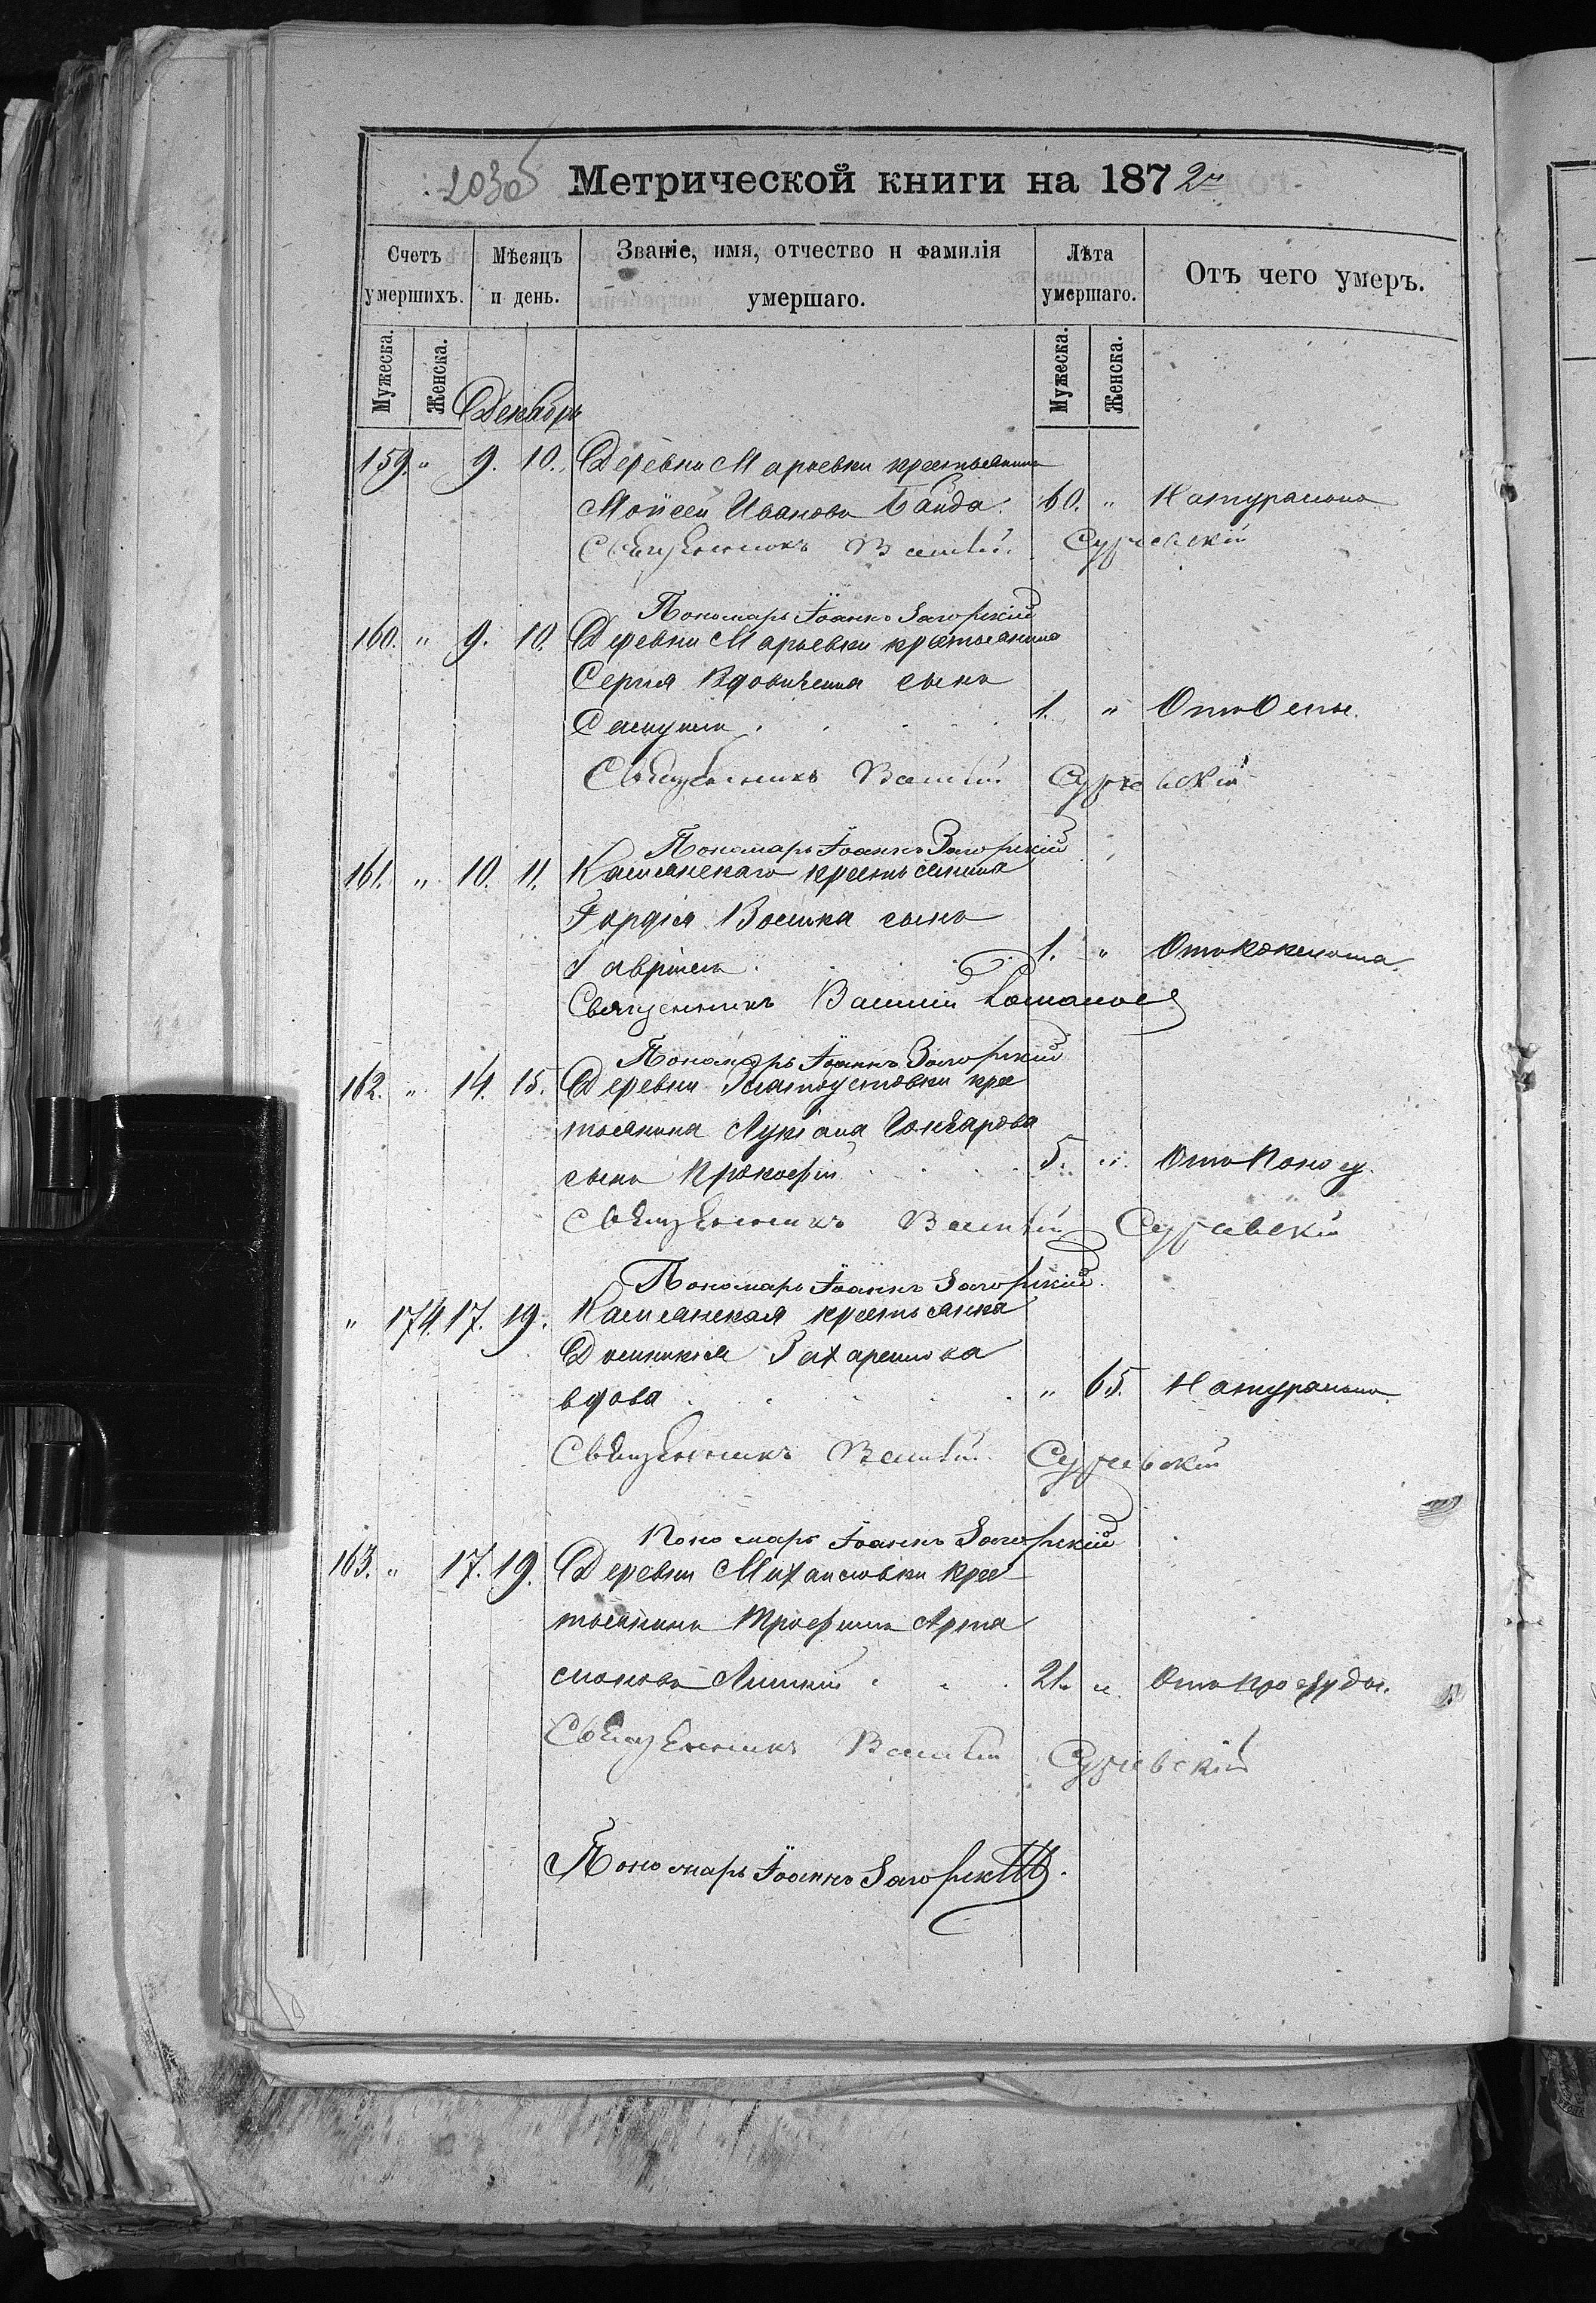 Метрической книги на 1872 г.
Счетъ умершихъ. Мѣсяцъ и день. Званіе, имя, отчество и фамилія умершаго. Лѣта умершаго. Отъ чего умеръ.
Мужеска. Женска. Декабрь Мужеска. Женска.
159. " 9. 10. Деревни Марьевки крестьянинъ
Моисей Ивановъ Байда. 60. " Натурально
Священникъ Василій
Пономарь Іоаннъ Загорскій
160. " 9. 10. Деревни Марьевки крестьянина
Сергія Вдовиченка сынъ
1. " Отъ Оспы.
Священникъ Василій
Пономарь Іоаннъ Загорскій
161. " 10. 11. Камянскаго крестьянина
Гордія Волика сынъ
Гавріилъ. 1. " Отъ Коклюша.
Священникъ Василій Романовъ
Пономарь Іоаннъ Загорскій
162. " 14. 15. Деревни Златоустовки крес
тьянина Лукіана Гончарова
сынъ Прокофій 5. " Отъ Поносу.
Священникъ Василій
Пономарь Іоаннъ Загорскій.
" 174. 17. 19. Камянская крестьянка
Домникія Захаренкова
вдова " 65. Натурально.
Священникъ Василій
Пономарь Іоаннъ Загорскій
163. " 17. 19. Деревни Михайловки крес
тьянинъ Трофимъ Арта
моновъ 21. " Отъ простуды.
Священникъ Василій
Пономарь Іоаннъ Загорскій.